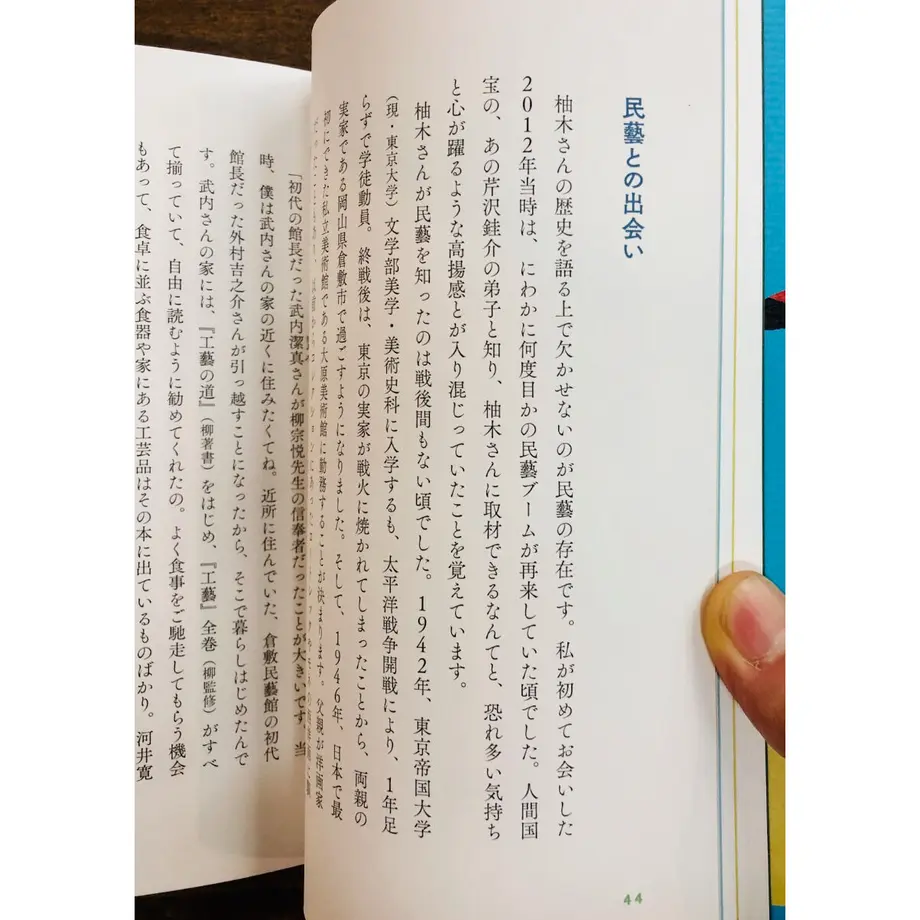 民藝との出会い
柚木さんの歴史を語る上で欠かせないのが民藝の存在です。私が初めてお会いした
2012年当時は、にわかに何度目かの民藝ブームが再来していた頃でした。人間国
宝の、あの芹沢銈介の弟子と知り、柚木さんに取材できるなんてと、恐れ多い気持ち
と心が躍るような高揚感とが入り混じっていたことを覚えています。
柚木さんが民藝を知ったのは戦後間もない頃でした。1942年、東京帝国大学
（現・東京大学）文学部美学・美術史科に入学するも、太平洋戦争開戦により、1年足
らずで学徒動員。終戦後は、東京の実家が戦火に焼かれてしまったことから、両親の
実家である岡山県倉敷市で過ごすようになりました。そして、1946年、日本で最
初にできた私立美術館である大原美術館に勤務することが決まります。父親が洋画家
44
「初代の館長だった武内潔真さんが柳宗悦先生の信奉者だったことが大きいです。当
時、僕は武内さんの家の近くに住みたくてね。近所に住んでいた、倉敷民藝館の初代
館長だった外村吉之介さんが引っ越すことになったから、そこで暮らしはじめたんで
す。武内さんの家には、『工藝の道』（柳著書）をはじめ、『工藝』全巻（柳監修）がすべ
て揃っていて、自由に読むように勧めてくれたの。よく食事をご馳走してもらう機会
もあって、食卓に並ぶ食器や家にある工芸品はその本に出ているものばかり。河井寛